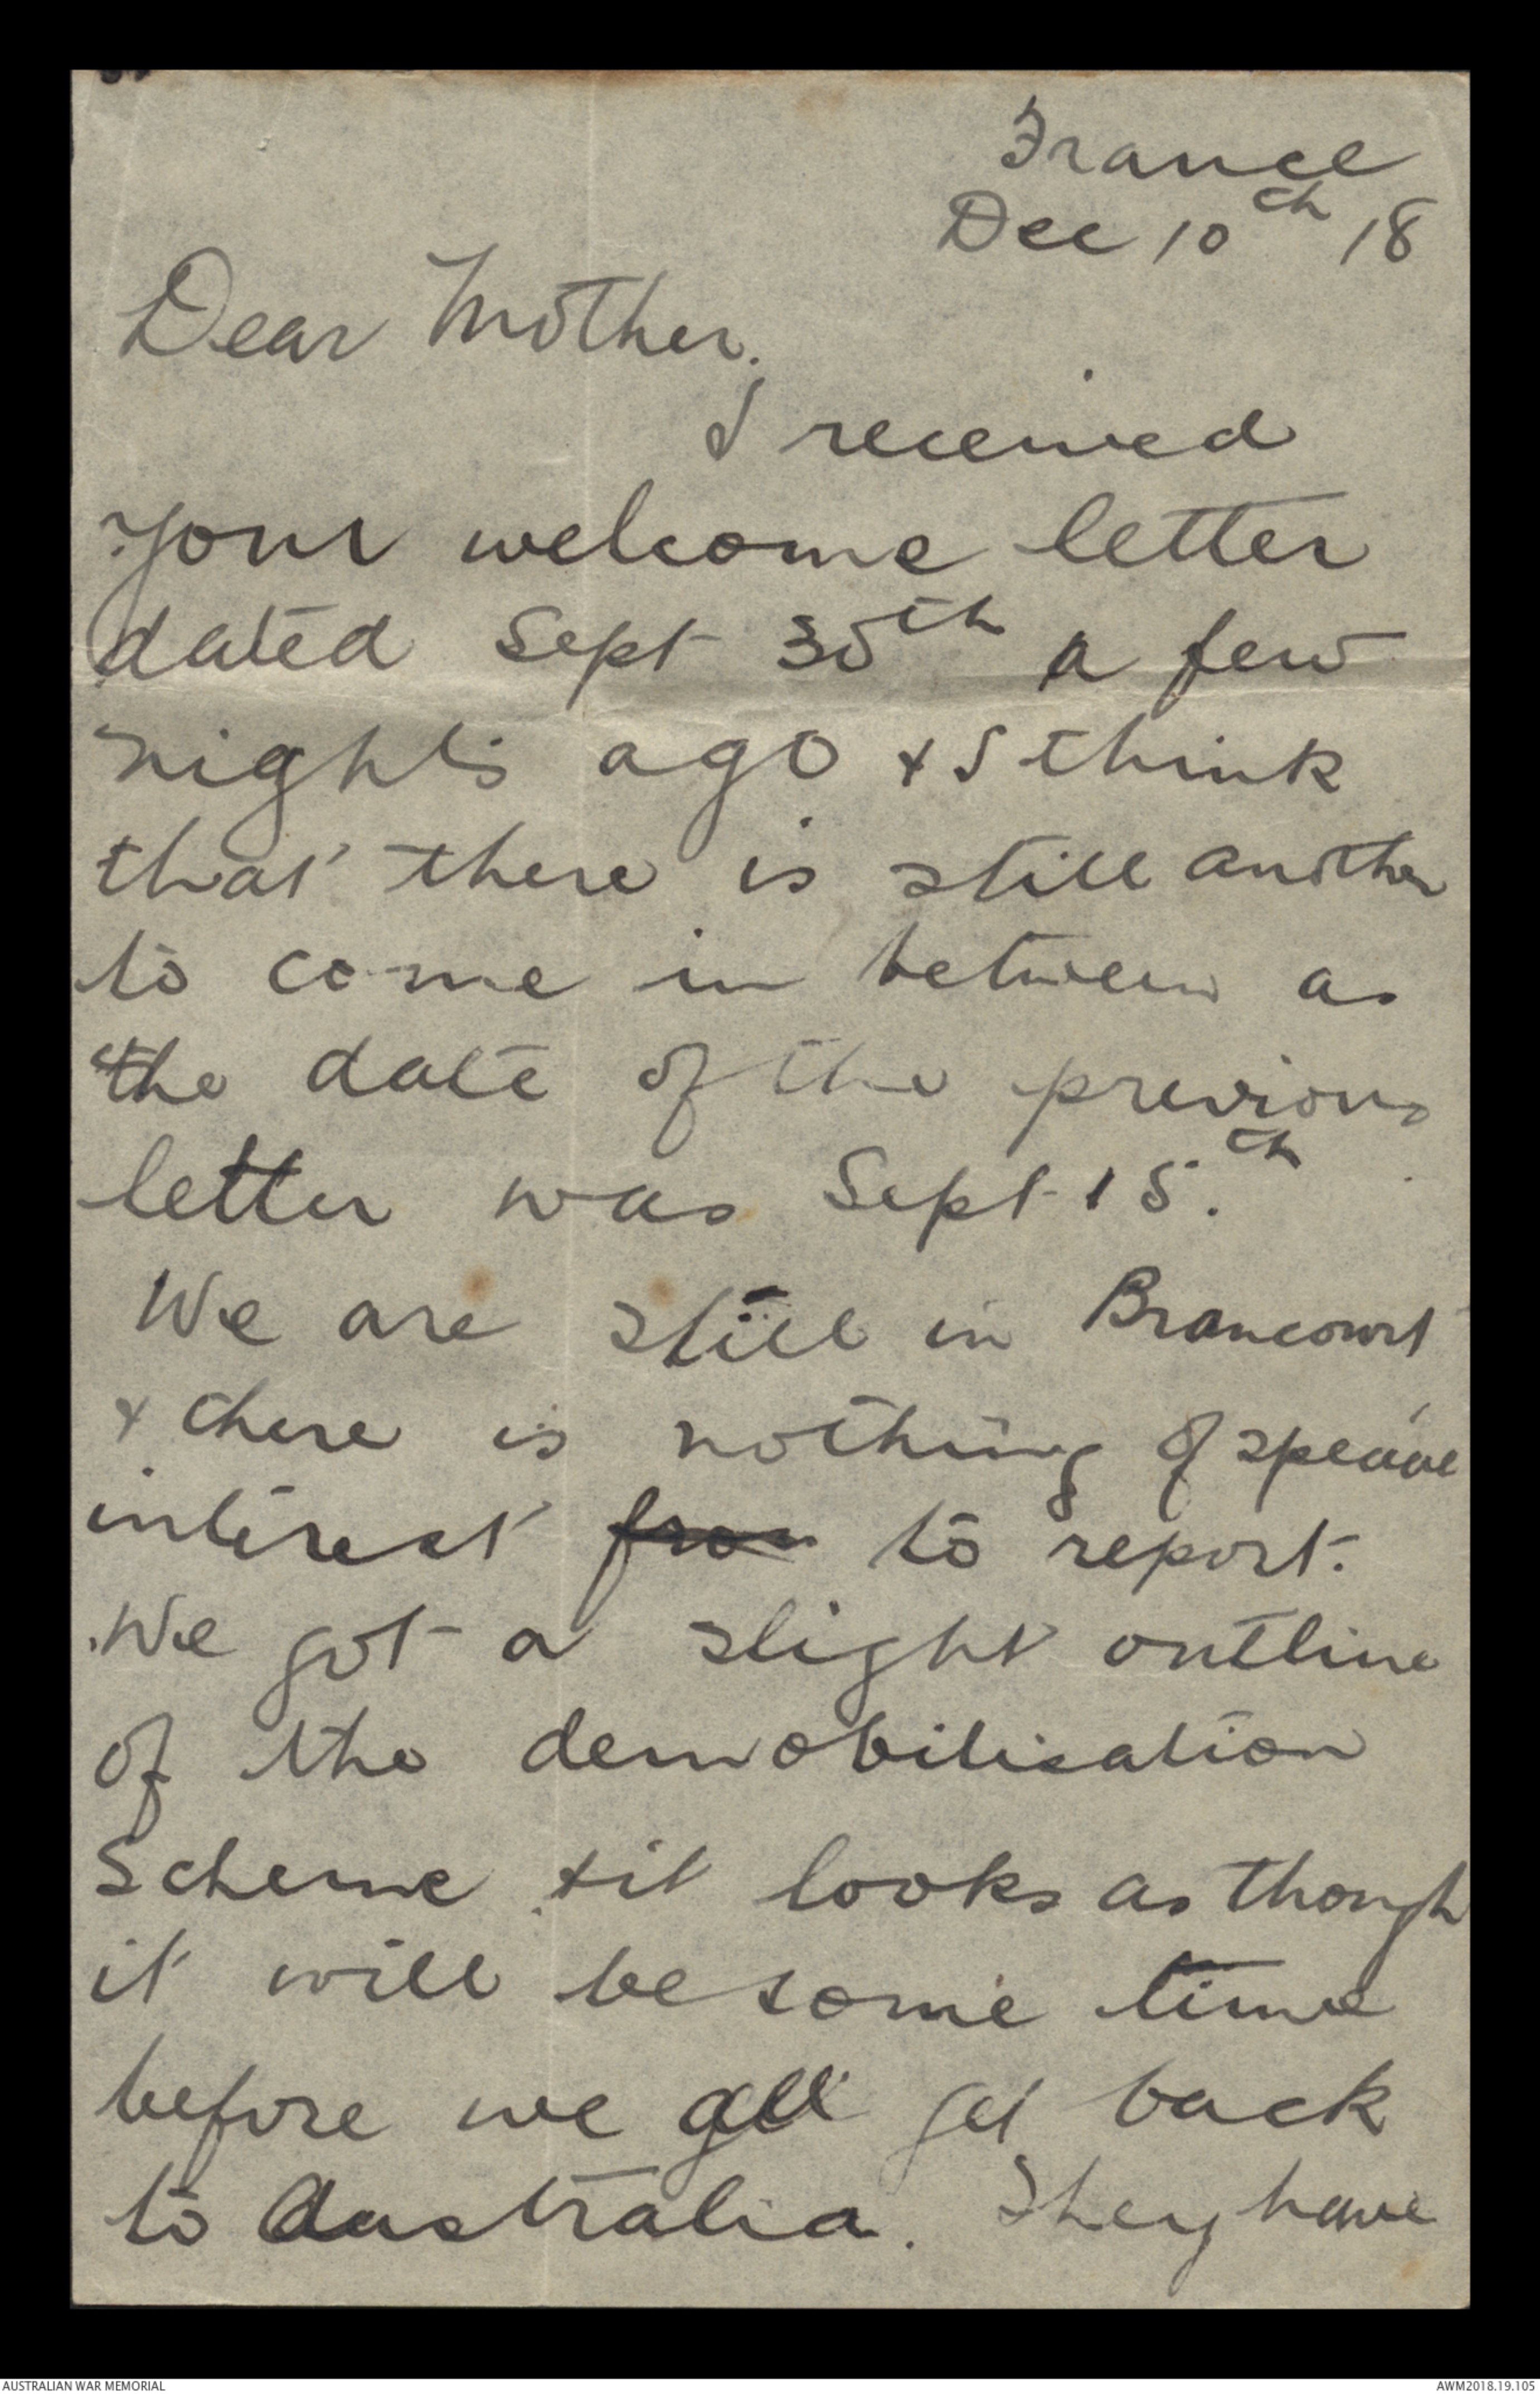 France
Dec 10th 18
Dear Mother.
I received
your welcome letter
dated Sept 30th a few
nights ago + I think
that there is still another
to come in between as
the date of the previous
letter was Sept 15.th
We are still in Brancourt
+ there is nothing of special
interest from to report.
We got a slight outline
of the demobilisation
Scheme + it looks as though
it will be some time
before we all get back
to Australia. They have
AUSTRALIAN WAR MEMORIAL
AWM2018.19.105